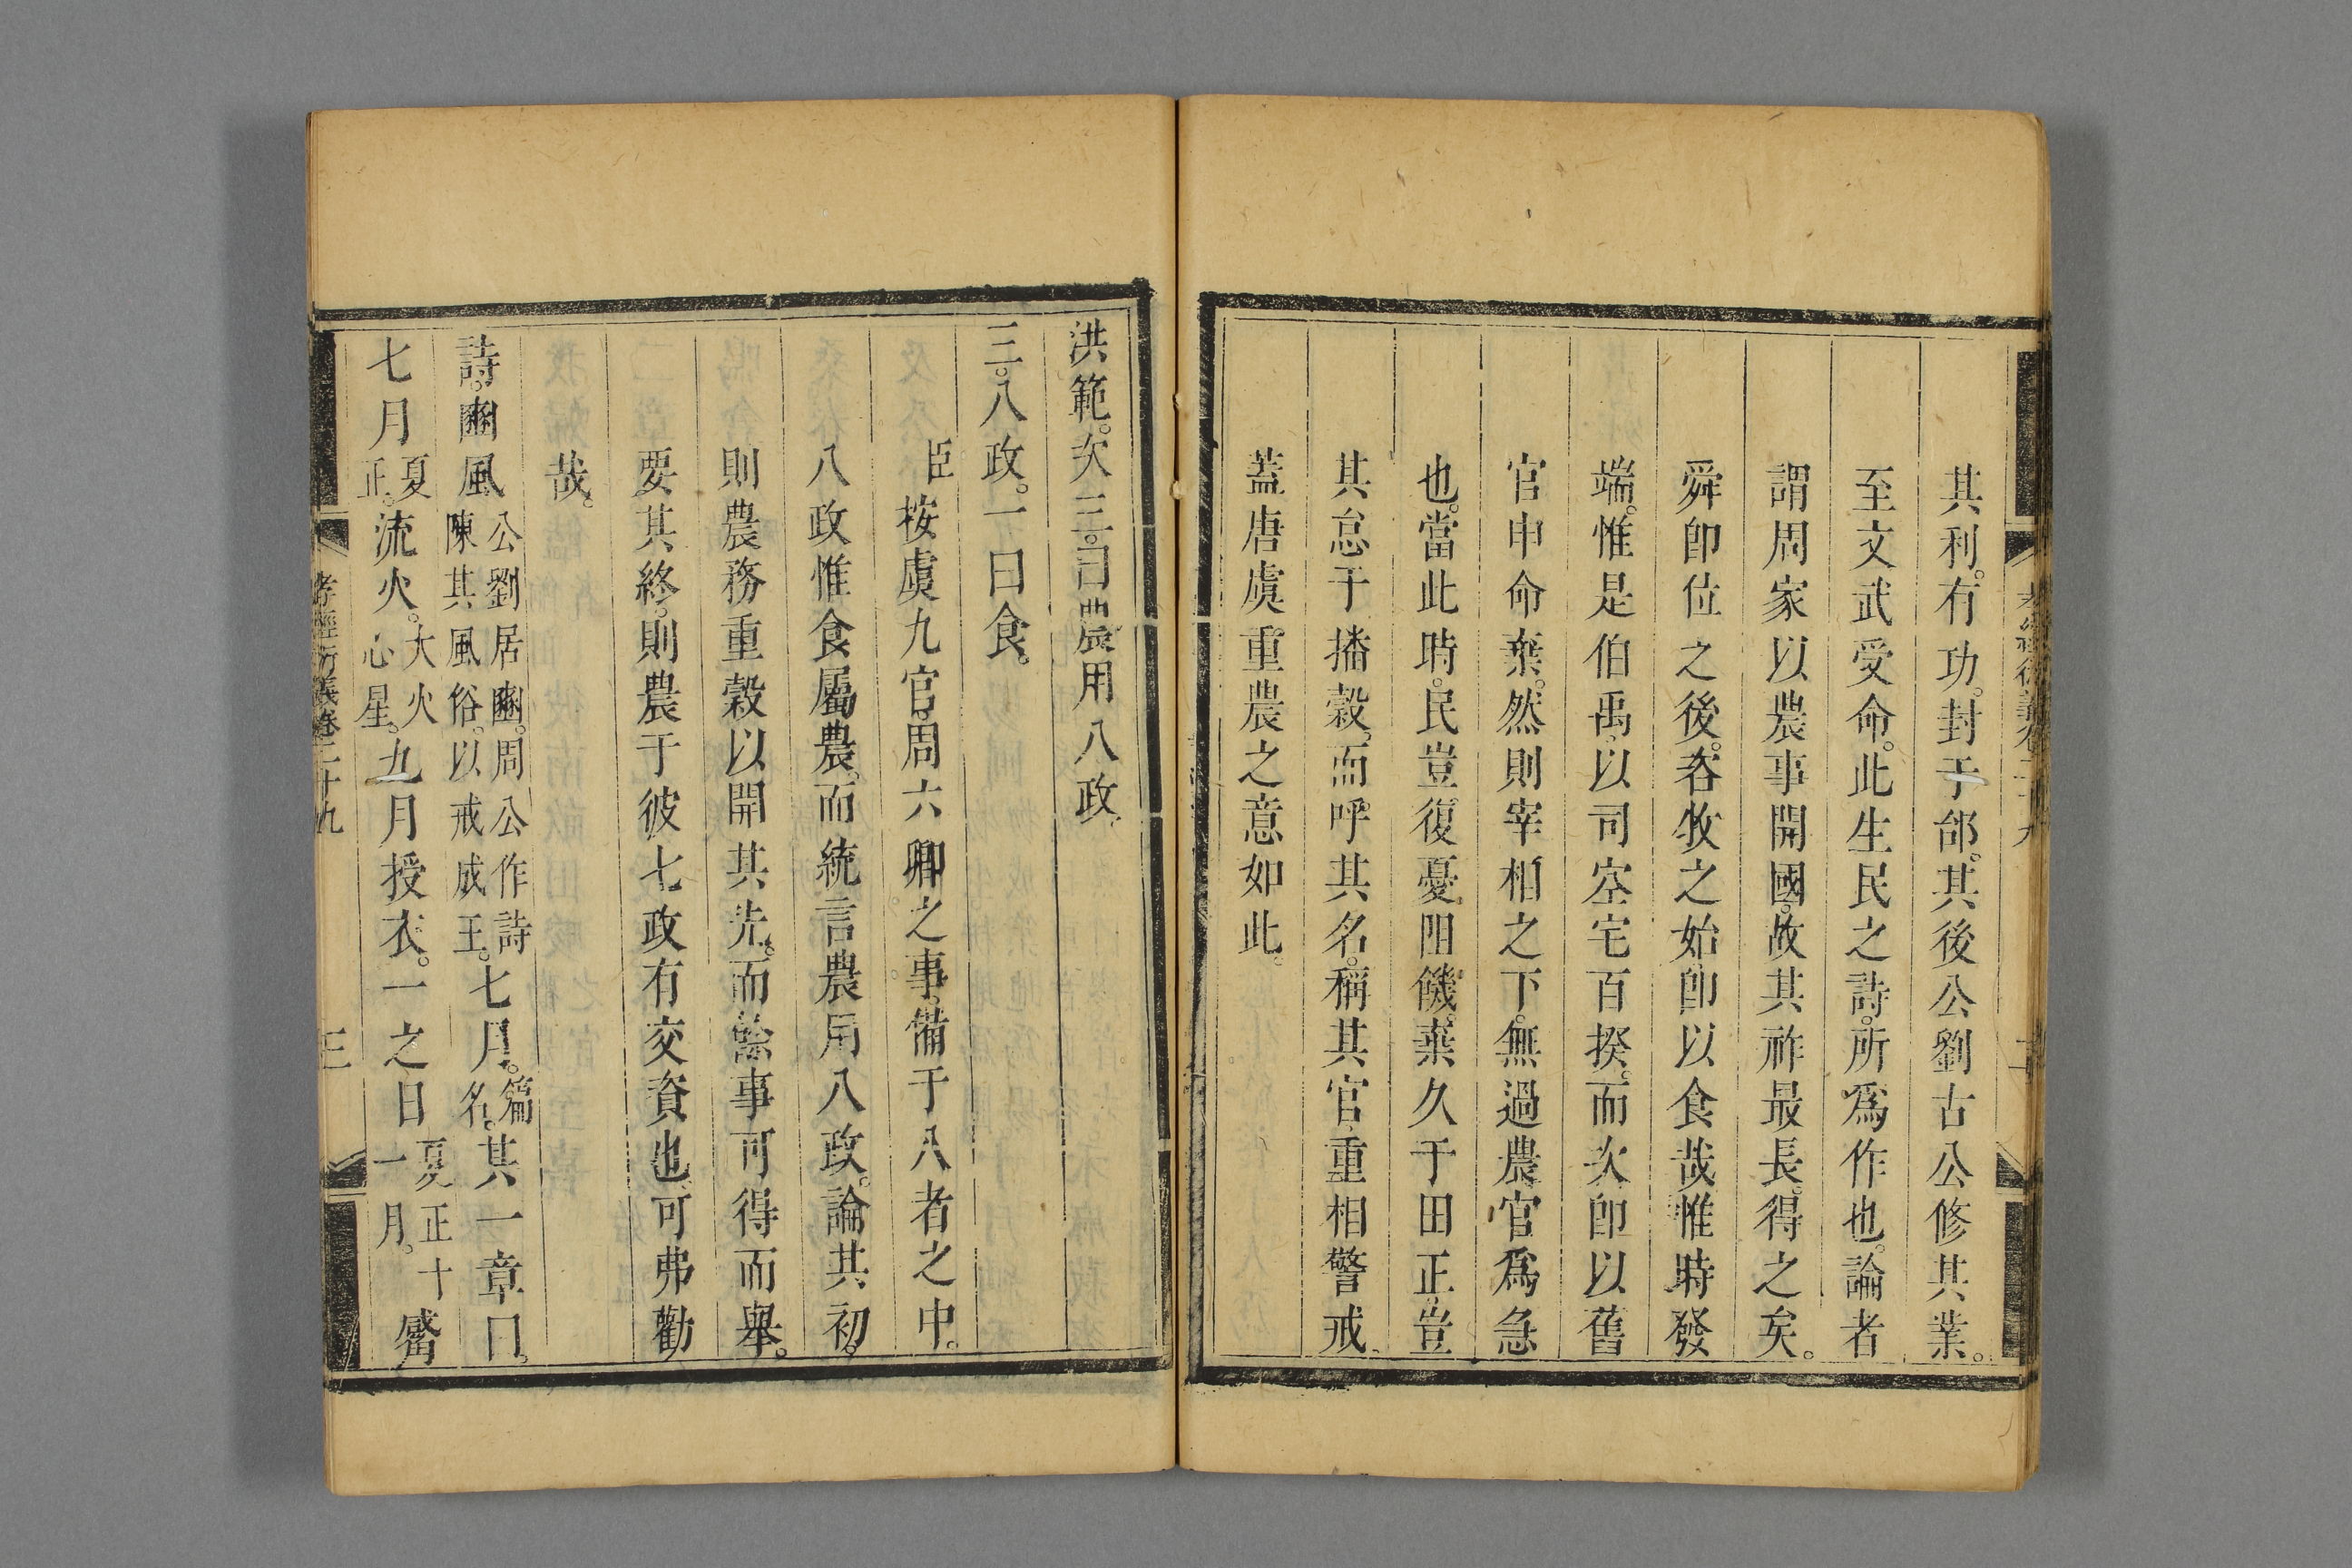 其利。有功。封于邰。其後公劉古公修其業。
至文武受命。此生民之詩。所爲作也。論者
謂周家以農事開國。故其祚最長。得之矣。
舜卽位之後。咨牧之始。卽以食哉惟時發
端。惟是伯禹。以司空宅百揆。而次卽以舊
官申命棄。然則宰相之下。無過農官爲急
也。當此時。民豈復憂阻饑。棄久于田正。豈
其怠于播穀。而呼其名。稱其官。重相警戒。
蓋唐虞重農之意如此。
洪範。次三。曰農用八政。
三。八政。一曰食。
臣按虞九官。周六卿之事。備于八者之中。
八政惟食屬農。而統言農用八政。論其初。
則農務重穀以開其先。而餘事可得而舉。
要其終。則農于彼七政有交資也。可弗勸
哉。
詩。豳風公劉居豳。周公作詩陳其風俗。以戒成王。七月。篇名。其一章曰。
七月夏正。流火。大火心星。九月授衣。一之日夏正十一月。觱
孝經衍義卷二十九
三